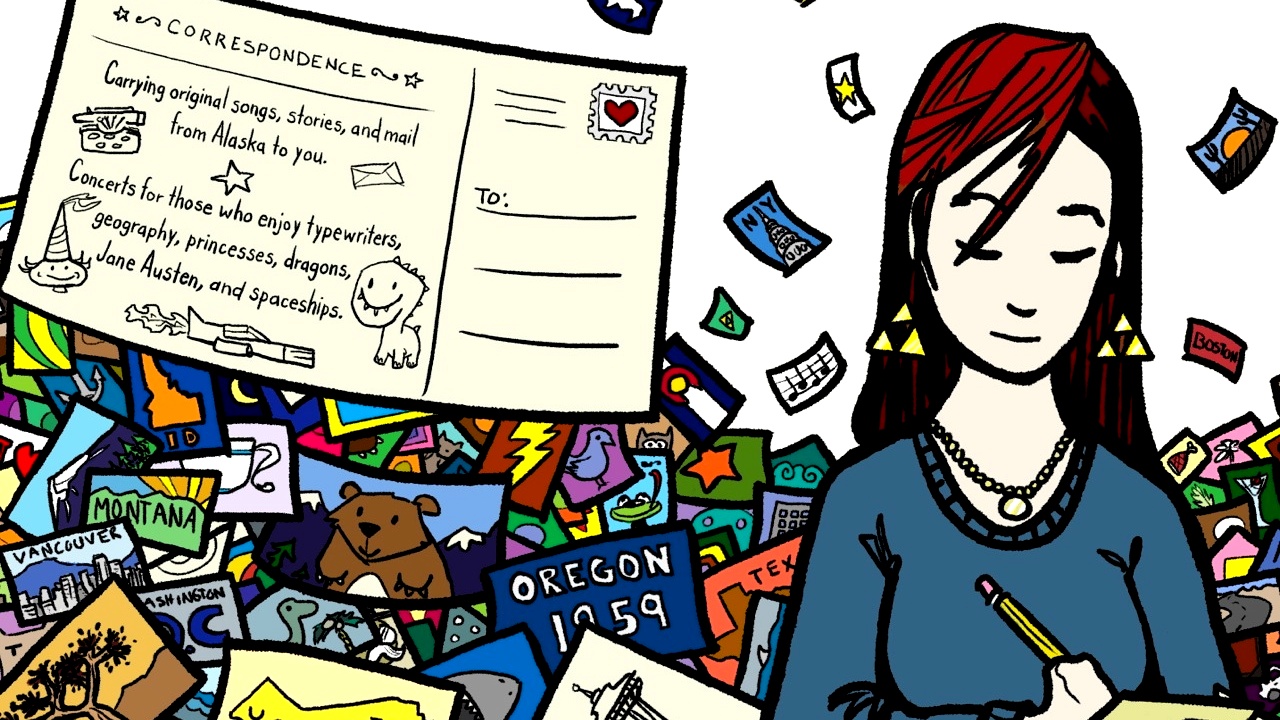 CORRESPONDENCE
Carrying original songs, stories, and mail
from Alaska to you.
Concerts for those who enjoy typewriters,
geography, princesses, dragons,
Jane Austen, and spaceships.
TO:
NY
BOSTON
ID
MONTANA
VANCOUVER
ASHINGTON
DC
OREGON
1959
TEX